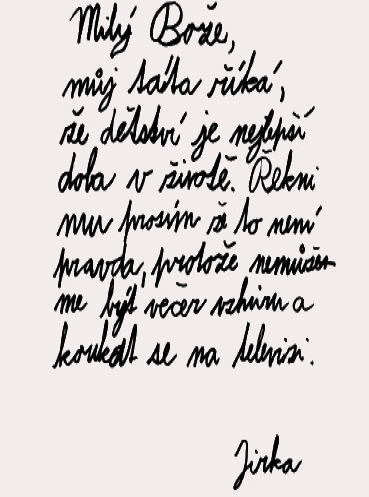 Milý Bože,
můj táta říká,
že dětství je nejlepší
doba v životě. Řekni
mu prosím že to není
pravda, protože nemůže
me být večer vzhůru a
koukat se na televisi.
Jirka